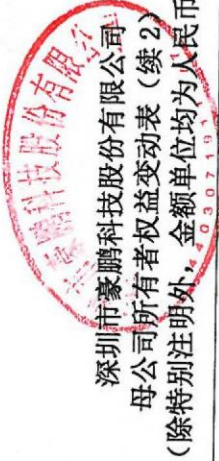 深圳市豪鹏科技股份有限公司
母公司所有者权益变动表（续 2）
（除特别注明外，金额单位均为人民币
豪鹏科技股份有限公
440307191